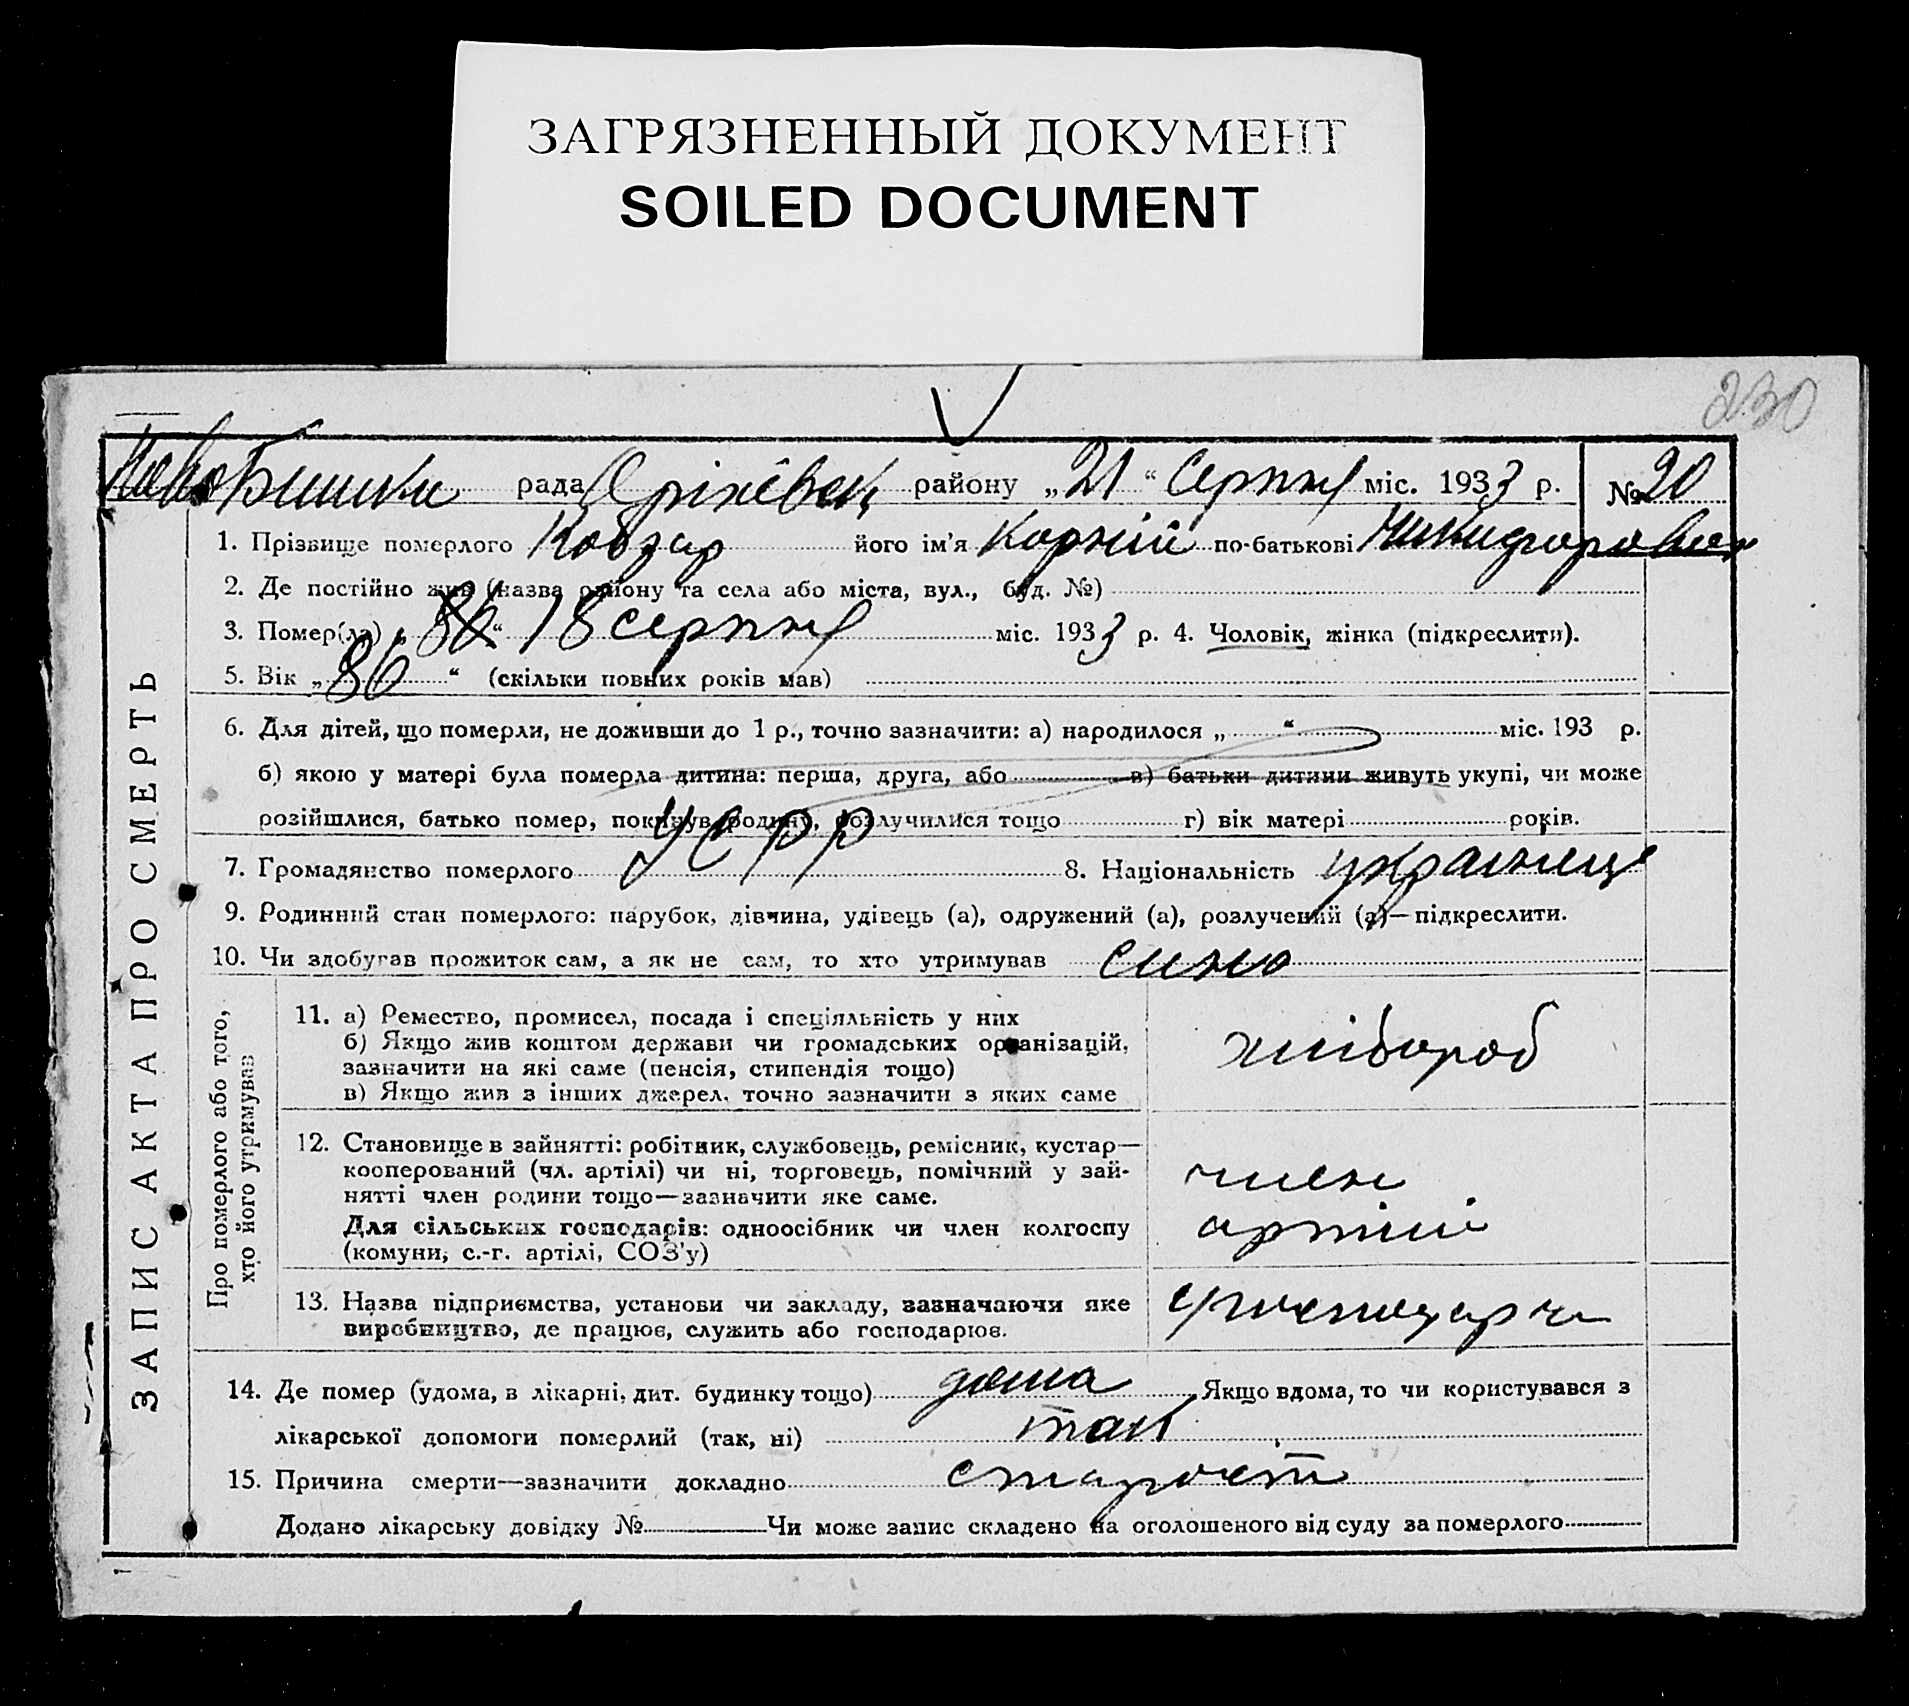 ЗАГРЯЗНЕННЫЙ ДОКУМЕНТ
SOILED DOCUMENT
230
рада району „21“ Серпня міс. 1933 р. № 20
1. Прізвище померлого Кобзар його ім’я Корній по-батькові
2. Де постійно жив (назва району та села або міста, вул., буд. №)
3. Помер(ла) „ “ 18 серпня міс. 1933 р. 4. Чоловік, жінка (підкреслити).
5. Вік „86“ (скільки повних років мав)
6. Для дітей, що померли, не доживши до 1 р., точно зазначити: а) народилося „ “ міс. 193 р.
б) якою у матері була померла дитина: перша, друга, або в) батьки дитини живуть укупі, чи може
розійшлися, батько помер, покинув родину, розлучилися тощо г) вік матері років.
7. Громадянство померлого УСРР 8. Національність українець
9. Родинний стан померлого: парубок, дівчина, удівець (а), одружений (а), розлучений (а)—підкреслити.
10. Чи здобував прожиток сам, а як не сам, то хто утримував сином
ЗАПИС АКТА ПРО СМЕРТЬ
Про померлого або того,
хто його утримував
11. а) Ремество, промисел, посада і спеціяльність у них
б) Якщо жив коштом держави чи громадських організацій,
зазначити на які саме (пенсія, стипендія тощо)
в) Якщо жив з інших джерел, точно зазначити з яких саме
хлібороб
12. Становище в зайнятті: робітник, службовець, ремісник, кустар—
кооперований (чл. артілі) чи ні, торговець, помічний у зай-
нятті член родини тощо—зазначити яке саме.
Для сільських господарів: одноосібник чи член колгоспу
(комуни, с.-г. артілі, СОЗ’у)
член
артілі
13. Назва підприємства, установи чи закладу, зазначаючи яке
виробництво, де працює, служить або господарює.
14. Де помер (удома, в лікарні, дит. будинку тощо) дома Якщо вдома, то чи користувався з
лікарської допомоги померлий (так, ні) так
15. Причина смерти—зазначити докладно старость
Додано лікарську довідку № Чи може запис складено на оголошеного від суду за померлого